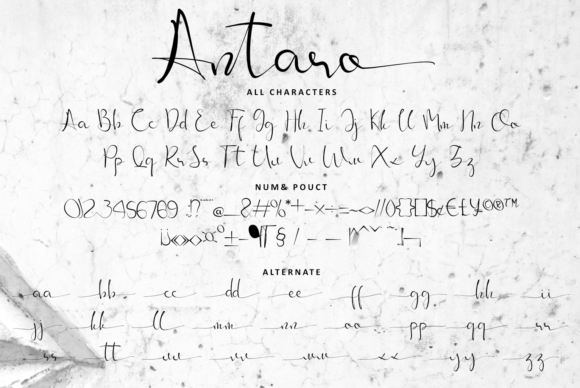 Antara
ALL CHARACTERS
Aa Bb Cc Dd Ee Ff Gg Hh Ii Jj Kk Ll Mm Nn Oo
Pp Qq Rr Ss Tt Uu Vv Ww Xx Yy Zz
NUM& POUCT
0123456789 !?
@ # % * + - × ÷ = ~ <> // () {} [] $ ¢ € £ ¥ © ® ™
« » ¤ ° ± ¶ § / – —
ALTERNATE
aa bb cc dd ee ff gg hh ii
jj kk ll mm nn oo pp qq rr
ss tt uu vv ww xx yy zz